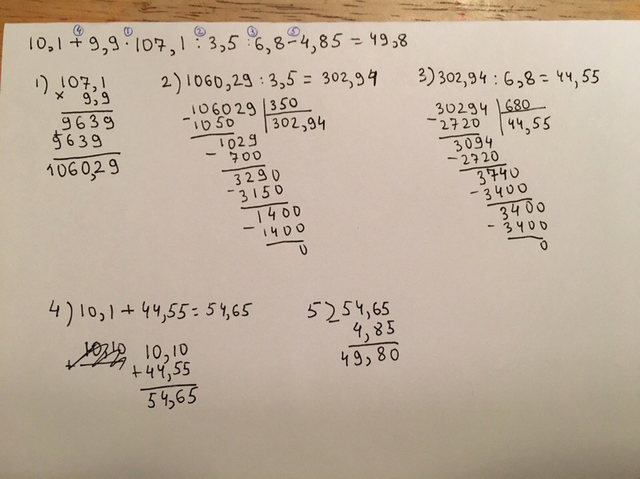 ④ ① ② ③ ⑤
10,1 + 9,9 · 107,1 : 3,5 : 6,8 - 4,85 = 49,8
1) 107,1
× 9,9
9639
+ 9639
1060,29
2) 1060,29 : 3,5 = 302,94
- 106029 | 350
1050 | 302,94
1029
- 700
3290
- 3150
1400
- 1400
0
3) 302,94 : 6,8 = 44,55
- 30294 | 680
2720 | 44,55
3094
- 2720
3740
- 3400
3400
- 3400
0
4) 10,1 + 44,55 = 54,65
10,10
+ 44,55
54,65
5) - 54,65
4,85
49,80